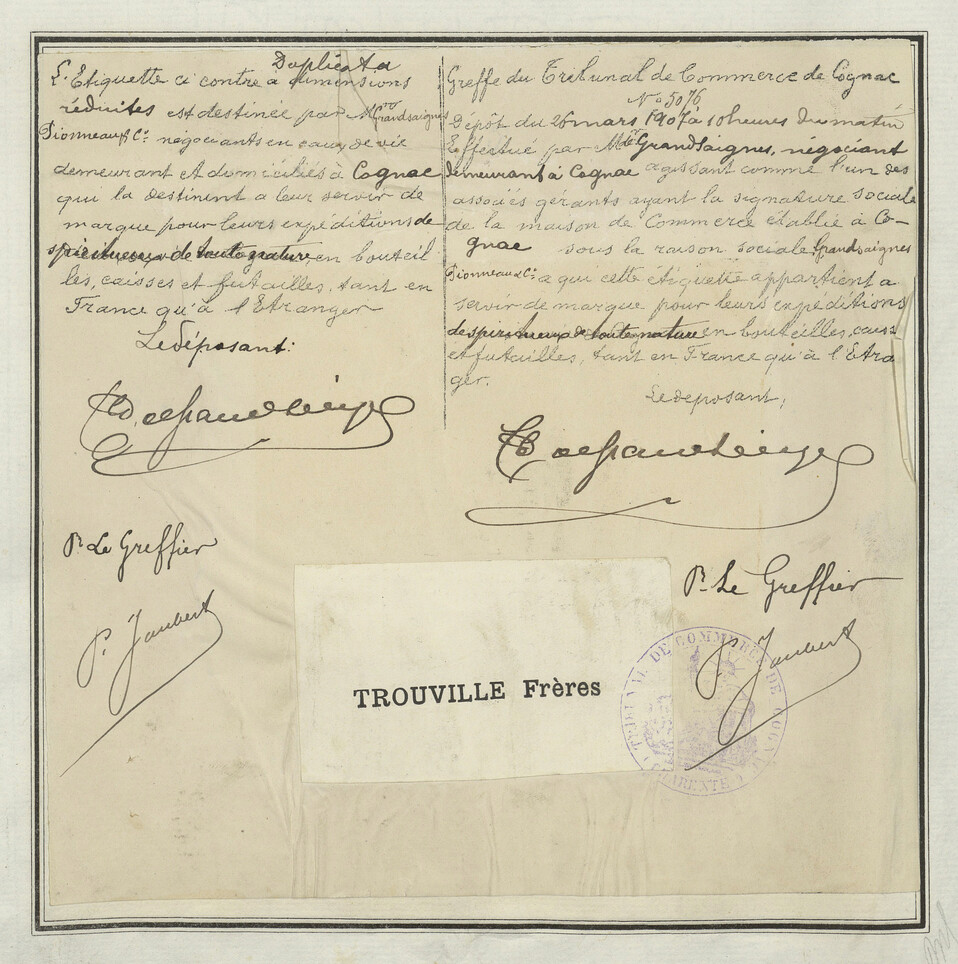 Duplicata
L'Etiquette ci contre a dimensions
réduites est destinée par Mrs Grandsaignes
Pionneau & Cie négociants en eaux de vie
demeurant et domiciliés à Cognac
qui la destinent a leur servir de
marque pour leurs expéditions de
spiritueux de toute nature, en bouteil
les, caisses et futailles, tant en
France qu'à l'Etranger
Le déposant:
P. Le Greffier
P. Jaubert
Greffe du Tribunal de Commerce de Cognac
No 5076
Dépôt du 26 mars 1907 à 10 heures du matin
Effectué par Mr de GrandSaignes, négociant
demeurant à Cognac agissant comme l'un des
associés gérants ayant la signature sociale
de la maison de Commerce établie à Co-
gnac sous la raison sociale, Grandsaignes
Pionneau & Cie a qui cette étiquette appartient a
servir de marque pour leurs expéditions
de spiritueux de toute nature en bouteilles, caiss
et futailles, tant en France qu'à l'Etra
ger.
Le déposant,
Pr Le Greffier
P. Jaubert
TROUVILLE Frères
TRIBUNAL DE COMMERCE DE COGNAC
CHARENTE